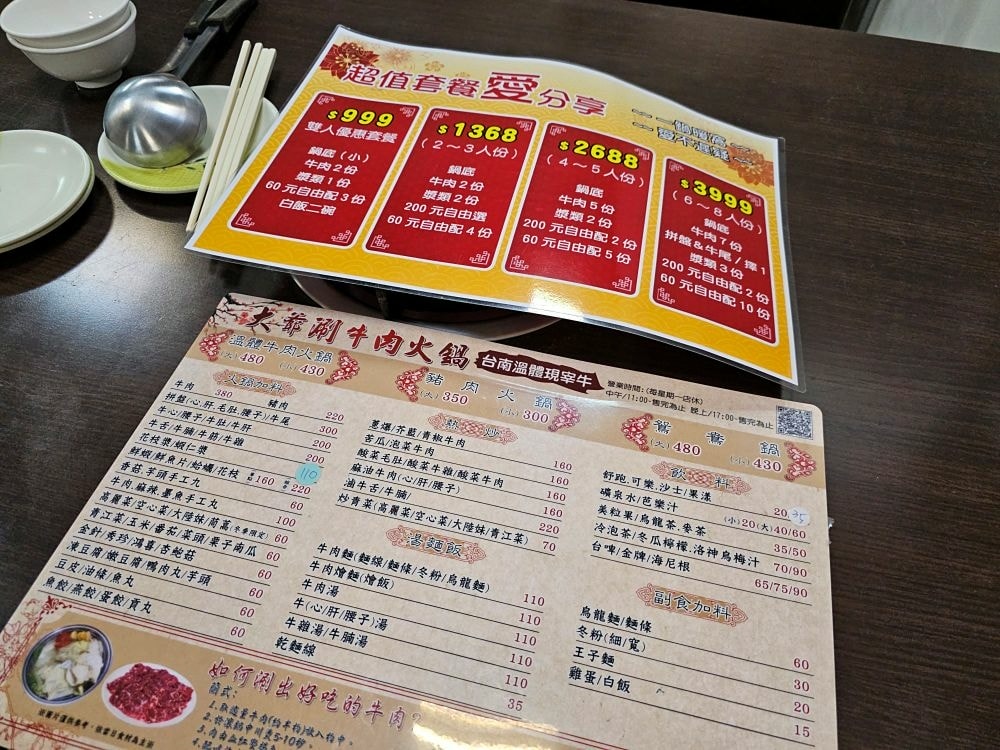 超值套餐愛分享
一鍋獨富
愛不遲疑
$999
雙人優惠套餐
鍋底(小)
牛肉2份
漿類1份
60元自由配3份
白飯二碗
$1368
(2~3人份)
鍋底
牛肉2份
漿類2份
200元自由選
60元自由配4份
$2688
(4~5人份)
鍋底
牛肉5份
漿類2份
200元自由配2份
60元自由配5份
$3999
(6~8人份)
鍋底
牛肉7份
拼盤&牛尾/擇1
漿類3份
200元自由配2份
60元自由配10份
大爺涮牛肉火鍋
台南溫體現宰牛
營業時間:(每星期一店休)
中午/11:00~售完為止 晚上/17:00~售完為止
溫體牛肉火鍋
(大)480 (小)430
豬肉火鍋
(大)350 (小)300
鴛鴦鍋
(大)480 (小)430
火鍋加料
牛肉 380 豬肉 220
拼盤(心.肝.毛肚.腰子)/牛尾 300
牛心/腰子/牛肚/牛肝 200
牛舌/牛腩/牛筋/牛雜 200
花枝漿/蝦仁漿 110
鮮蝦/鮮魚片/蛤蠣/花枝 160 220
香菇.芋頭手工丸 60
牛肉.麻辣.墨魚手工丸 100
高麗菜/空心菜/大陸妹/茼蒿(冬季限定) 60
青江菜/玉米/番茄/菜頭/栗子南瓜 60
金針/秀珍/鴻喜/杏鮑菇 60
凍豆腐/嫩豆腐/鴨肉丸/芋頭 60
豆皮/油條/魚丸 60
魚餃/燕餃/蛋餃/貢丸 60
熱炒
蔥爆/芥藍/青椒牛肉 160
苦瓜/泡菜牛肉 160
酸菜毛肚/酸菜牛雜/酸菜牛肉 160
麻油牛肉(心/肝/腰子) 160
滷牛舌/牛腩/ 220
炒青菜(高麗菜/空心菜/大陸妹/青江菜) 70
湯麵飯
牛肉麵(麵線/麵條/冬粉/烏龍麵) 110
牛肉燴麵(燴飯) 110
牛肉湯 110
牛(心/肝/腰子)湯 110
牛雜湯/牛腩湯 110
乾麵線 35
飲料
舒跑.可樂.沙士/果漾 20/35
礦泉水/芭樂汁 (小)20(大)40/60
美粒果/烏龍茶.麥茶 35/50
冷泡茶/冬瓜檸檬.洛神烏梅汁 70/90
台啤/金牌/海尼根 65/75/90
副食加料
烏龍麵/麵條 60
冬粉(細/寬) 30
王子麵 20
雞蛋/白飯 15
如何涮出好吃的牛肉?
簡式:
1.取適量牛肉(約半杓)放入杓中。
2.於滾鍋中川燙5-10秒。
3.肉由血紅變